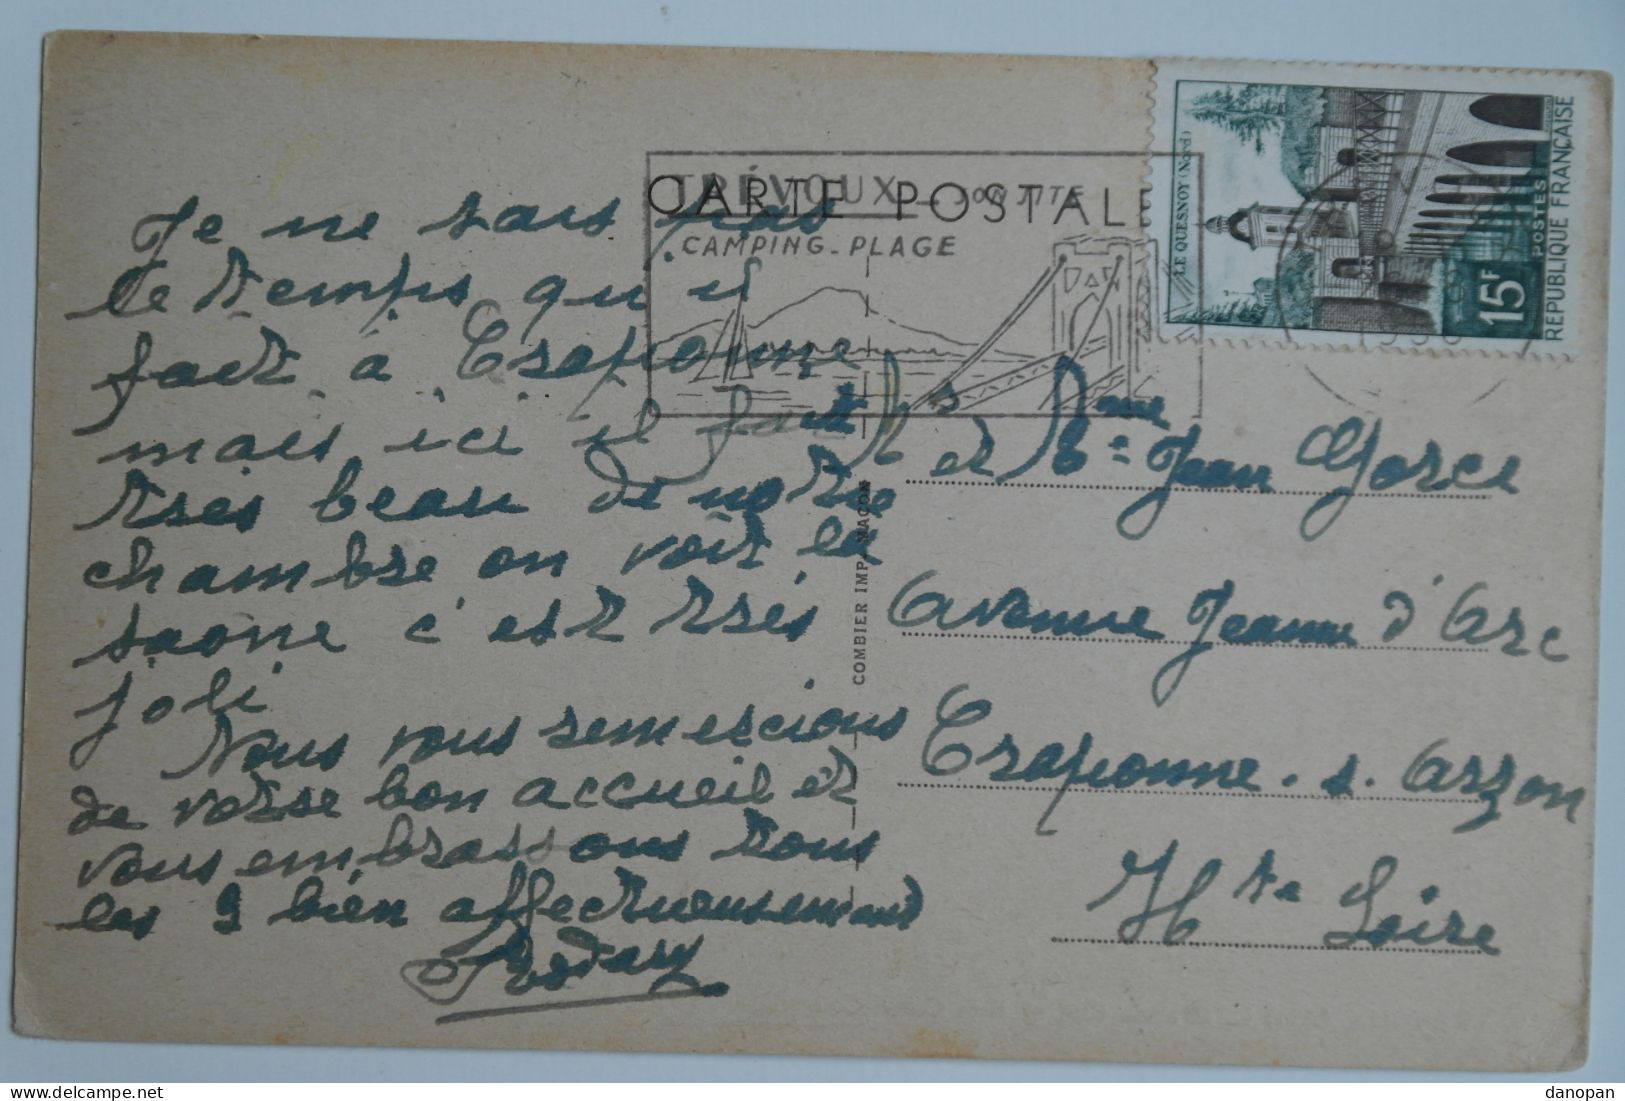 CARTE POSTALE
TRÉVOUX
CAMPING - PLAGE
LE QUESNOY (Nord)
15F
POSTES
REPUBLIQUE FRANÇAISE
Je ne sais pas
le temps qu'il
fait à Craponne
mais ici il fait
très beau de notre
chambre on voit la
saone c'est très
joli
Nous vous remercions
de votre bon accueil et
vous embrassons tous
les 2 bien affectueusement
COMBIER IMP. MACON
Mr et Mme Jean Gorce
Avenue Jeanne d'Arc
Craponne. s. Arzon
Hte Loire
danopan